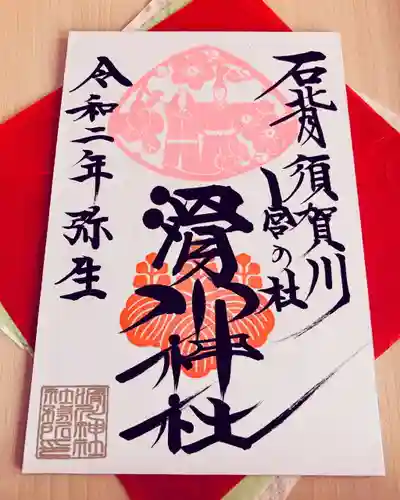 石背 須賀川
一宮の杜
滑川神社
令和二年 弥生
滑川神社
社務所印